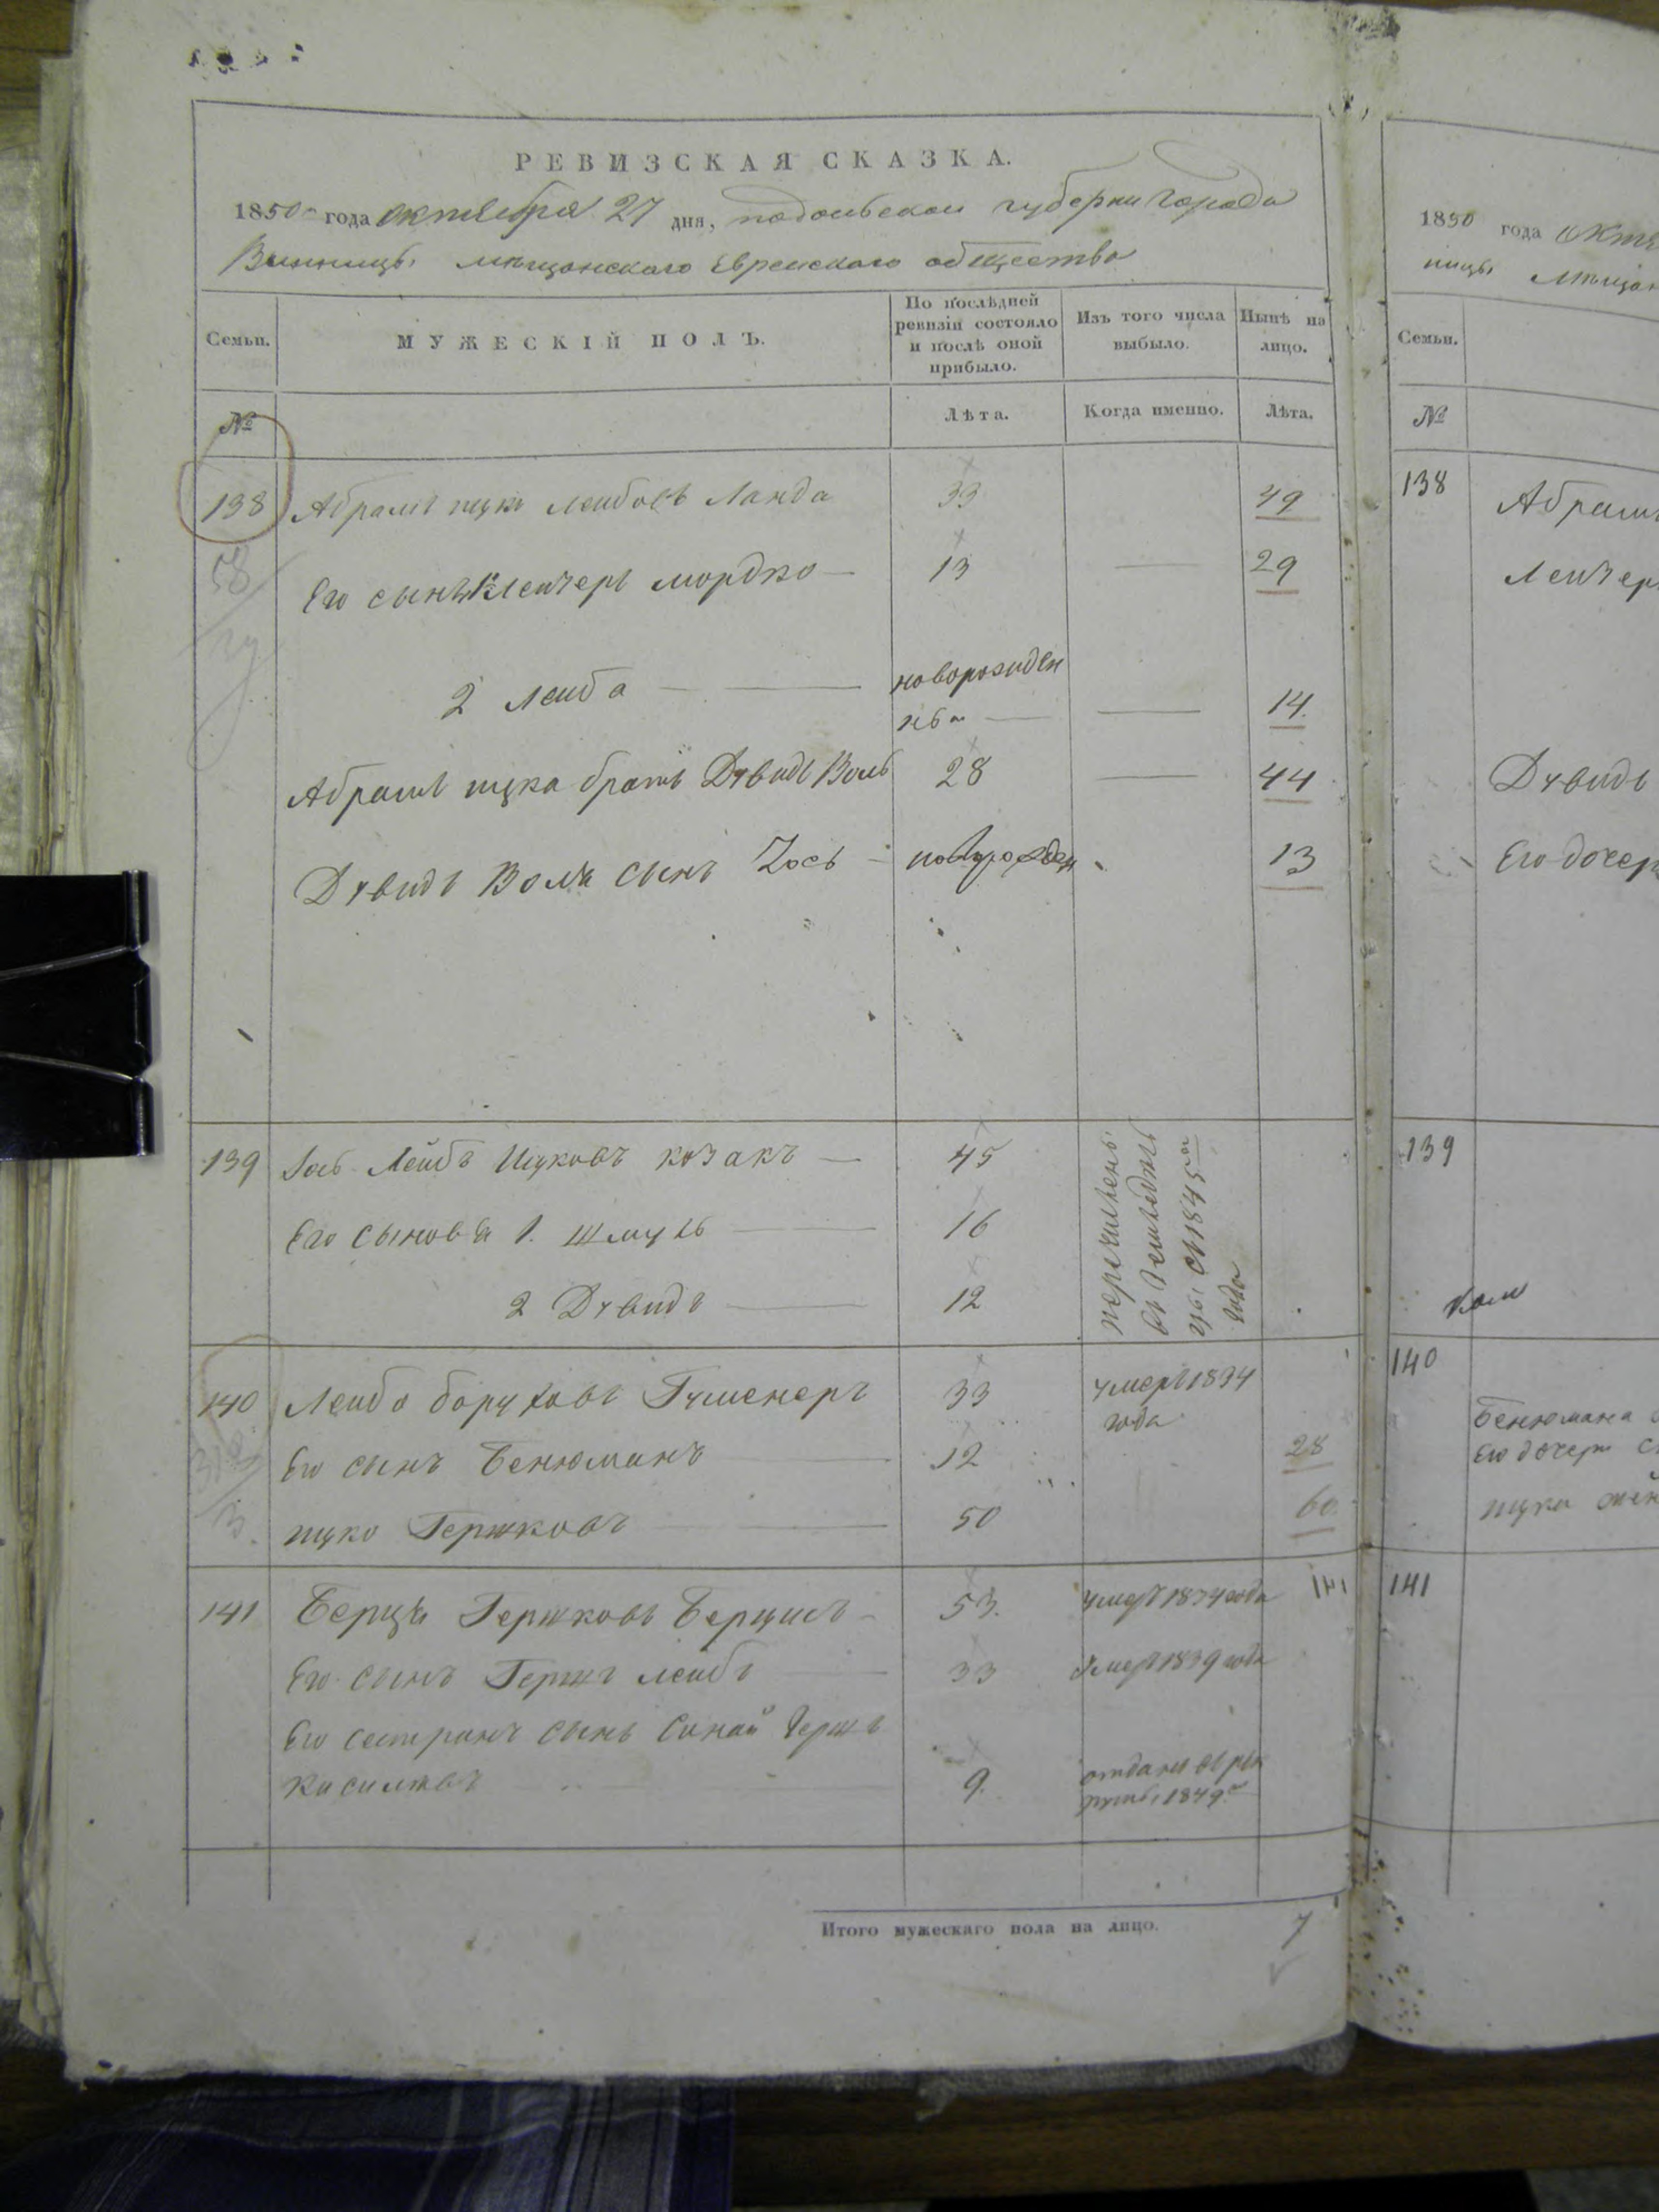 РЕВИЗСКАЯ СКАЗКА.
1850 года октября 27 дня, подольской губернии города
Винницы мещанского Еврейского общества
Семьи.
МУЖЕСКІЙ ПОЛЪ.
По послѣдней ревизіи состояло и послѣ оной прибыло.
Изъ того числа выбыло.
Нынѣ на лицо.
№
Лѣта.
Когда именно.
Лѣта.
138 Абрамъ ицко Лейбовъ Ланда 33 49
Его сынъ 1й Лейзеръ мордко — 13 — 29
2 Лейба — — новорожден
ный — — 14.
Абрамъ ицка братъ Дувидъ Воль 28 — 44
Дувидъ Воля сынъ Іось — новорожден 13
139 Іось Лейбъ Ицковъ козакъ — 45
Его сыновья 1. Шмуль — 16
2 Дувидъ — 12
перечисленъ
въ земледѣль
цы съ 1845го
года
140 Лейба боруховъ Гуменеръ 33 умеръ 1834
года
Его сынъ Бенюминъ 12 28
ицко Гершковъ 50 60
141 Берцъ Гершковъ 53. умеръ 1834 года 141
Его сынъ Гершъ лейбъ 33 умеръ 1839 года
Его сестринъ сынъ Синай Герш
9. отданъ въ рек
руты 1849го
Итого мужескаго пола на лицо. 7
1850 года Октя
ницы мещан
Семьи.
№
138 Абрамъ
Лейзер
Дувидъ
Его дочер
139
140
Бенюмина
Его дочери
ицки жен
141